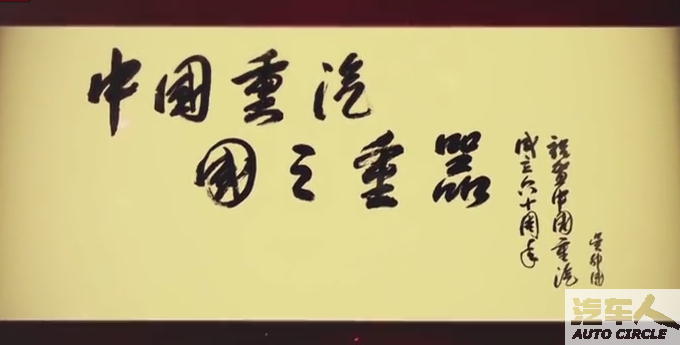 中國重汽
國之重器
祝賀中國重汽
成立六十周年
汽车人
AUTO CIRCLE